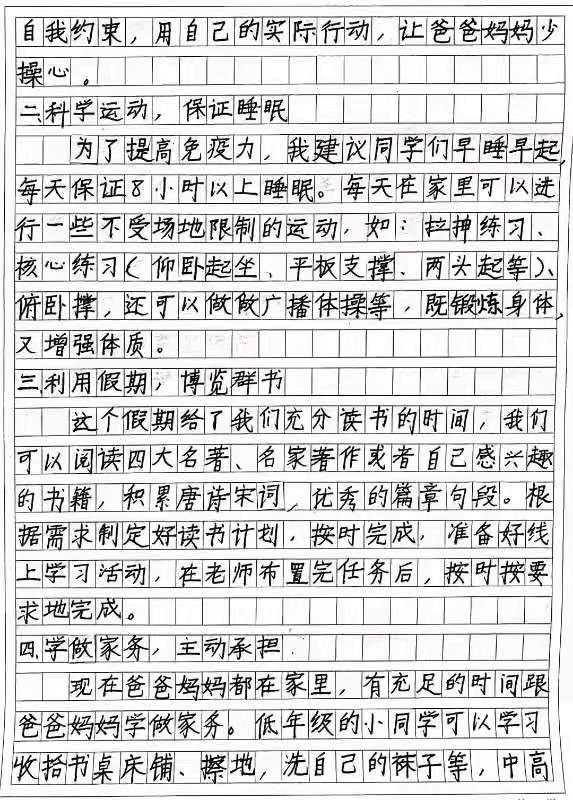 自我约束，用自己的实际行动，让爸爸妈妈少
操心。
二.科学运动，保证睡眠
为了提高免疫力，我建议同学们早睡早起，
每天保证8小时以上睡眠。每天在家里可以选
行一些不受场地限制的运动，如：拉抻练习、
核心练习（仰卧起坐、平板支撑、两头起等）、
俯卧撑，还可以做做广播体操等，既锻炼身体，
又增强体质。
三.利用假期，博览群书
这个假期给了我们充分读书的时间，我们
可以阅读四大名著、名家著作或者自己感兴趣
的书籍，积累唐诗宋词，优秀的篇章句段。根
据需求制定好读书计划，按时完成，准备好线
上学习活动，在老师布置完任务后，按时按要
求地完成。
四.学做家务，主动承担
现在爸爸妈妈都在家里，有充足的时间跟
爸爸妈妈学做家务。低年级的小同学可以学习
收拾书桌床铺、擦地，洗自己的袜子等，中高